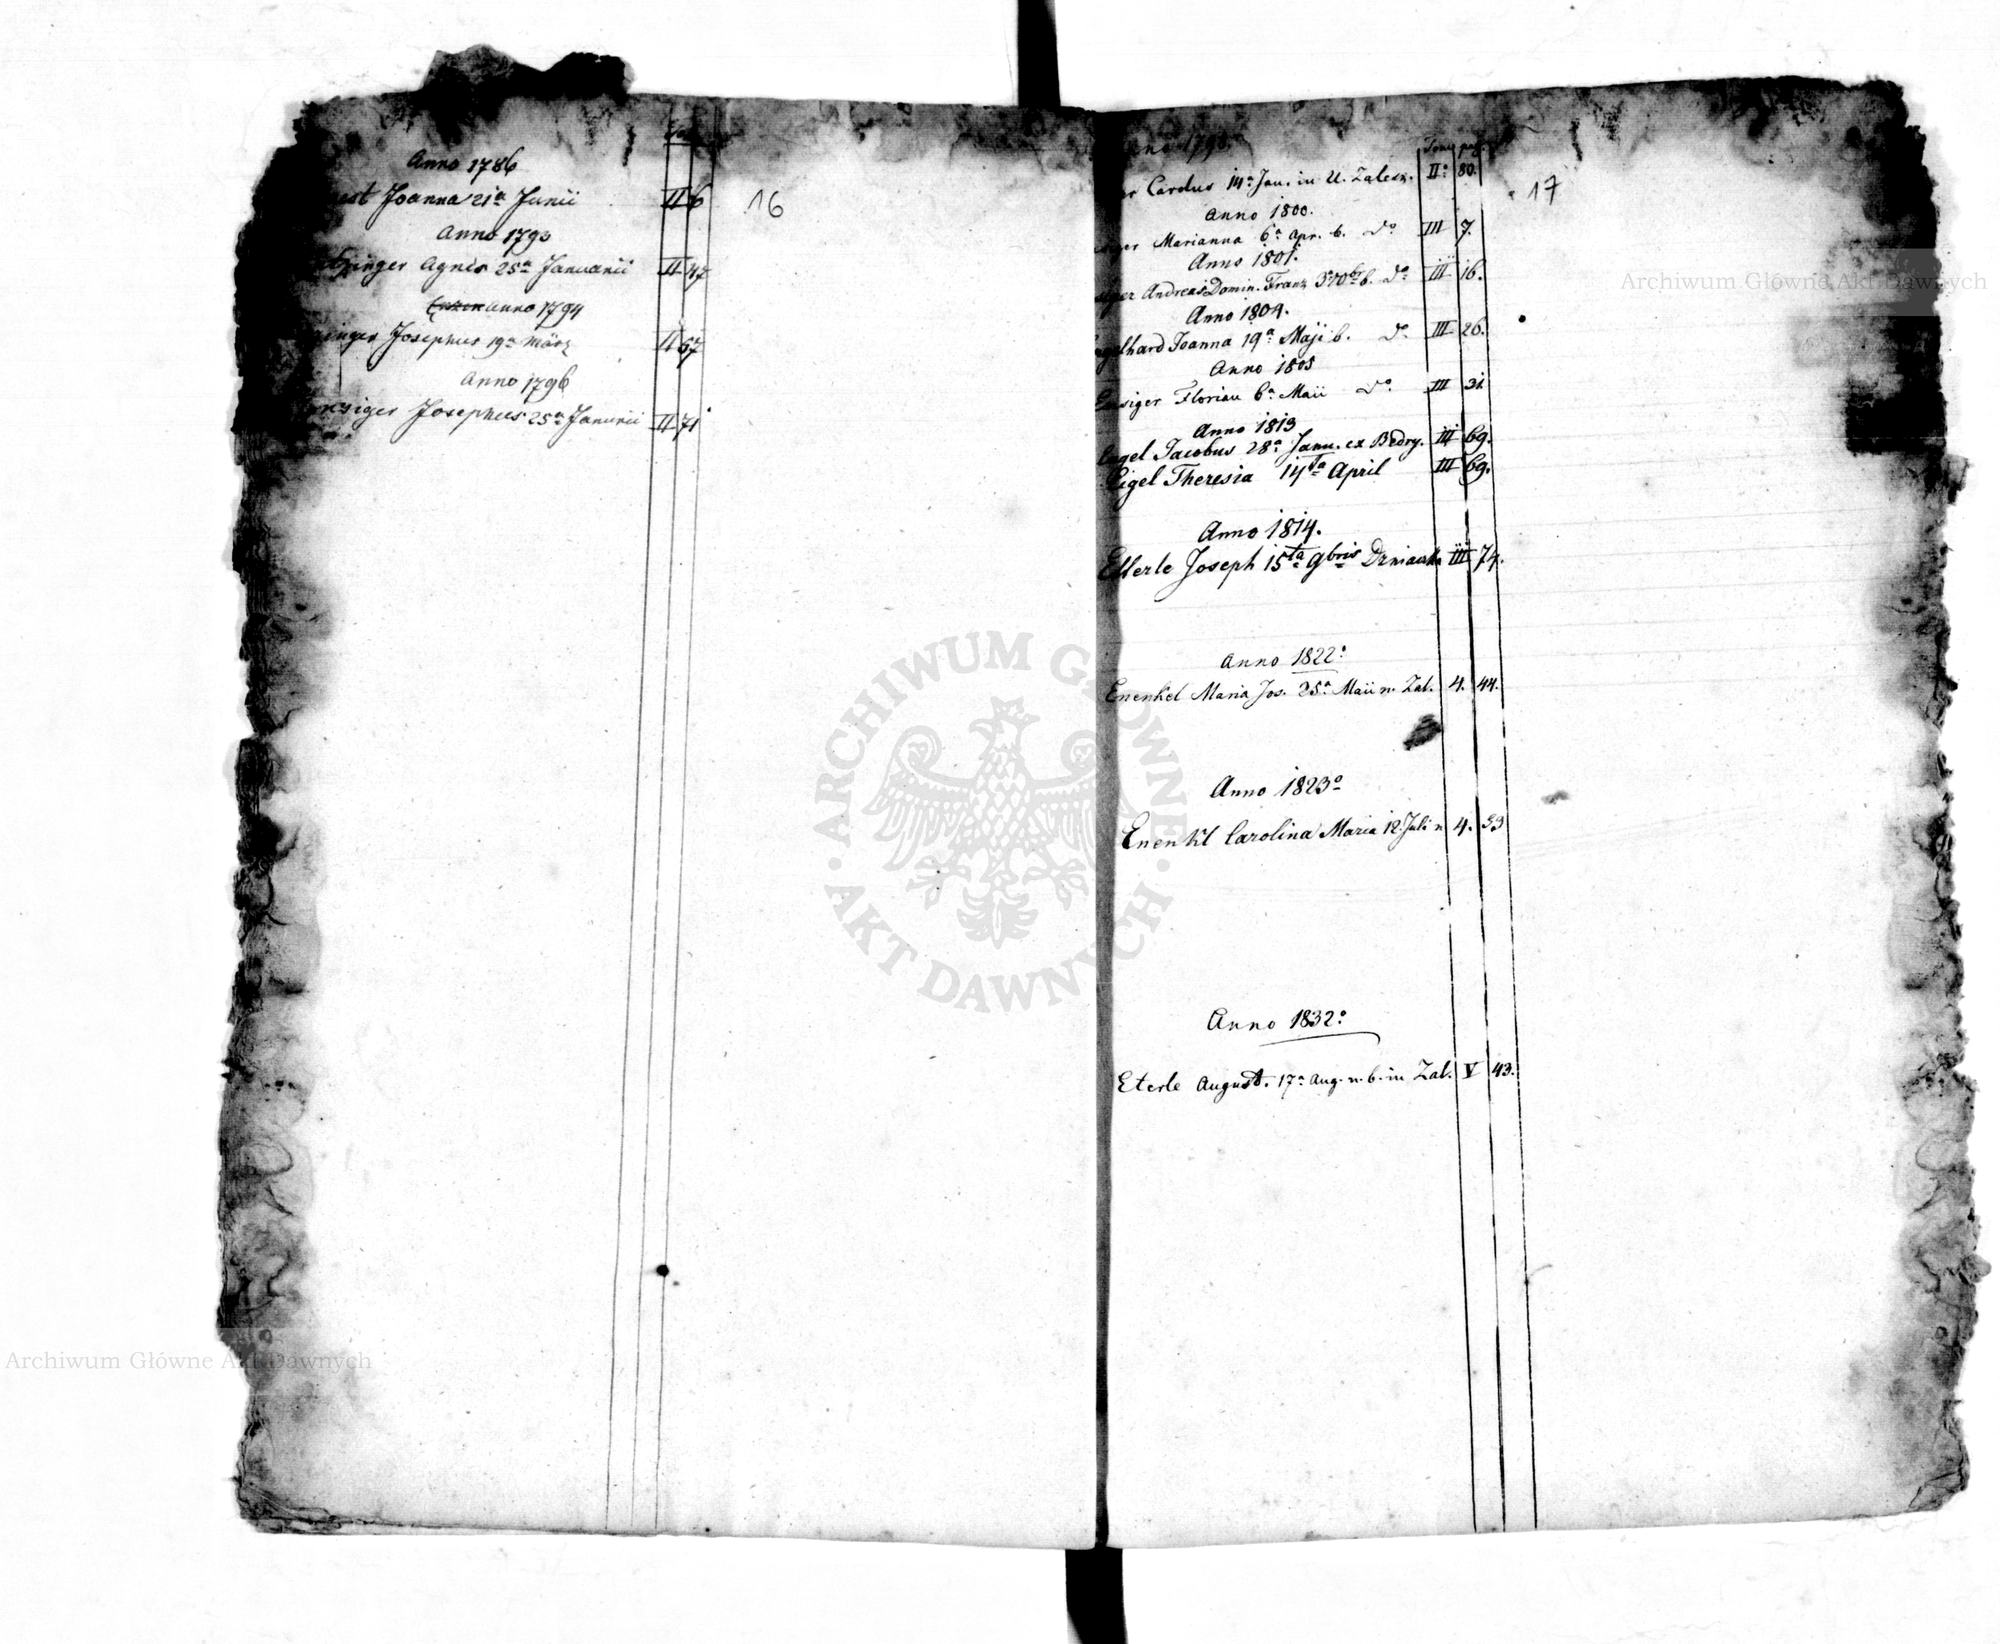 Anno 1786
Joanna 21a Junii II 6
16
Anno 1793
Agnes 25a Januarii II 47
Anno 1794
Josephus 19a März II 67
Anno 1796
Josephus 25a Januarii II 71
Tom pag.
Carolus 14a Jan. in U. Zalesz. IIo 80.
17
Anno 1800.
Marianna 6a Apr. b. do III 7.
Anno 1801.
Andreas Domin. Franz b. do III 16.
Anno 1804.
Joanna 19a Maji b. do III 26.
Anno 1805
Florian 6a Maii do III 31.
Anno 1813
Engel Jacobus 28a Janu. ex Bedry. III 69.
Eigel Theresia 14ta April III 69.
Anno 1814.
Ellerle Joseph 15ta 9bris III 74.
Anno 1822o
Enenkel Maria Jos. 25a Maii n. Zal. 4. 44.
Anno 1823o
Enenkl Carolina Maria 12. Juli n 4. 53
Anno 1832o
Eterle August. 17a Aug. n. b. in Zal. V 43.
Archiwum Główne Akt Dawnych
ARCHIWUM GŁÓWNE
AKT DAWNYCH
Archiwum Główne Akt Dawnych